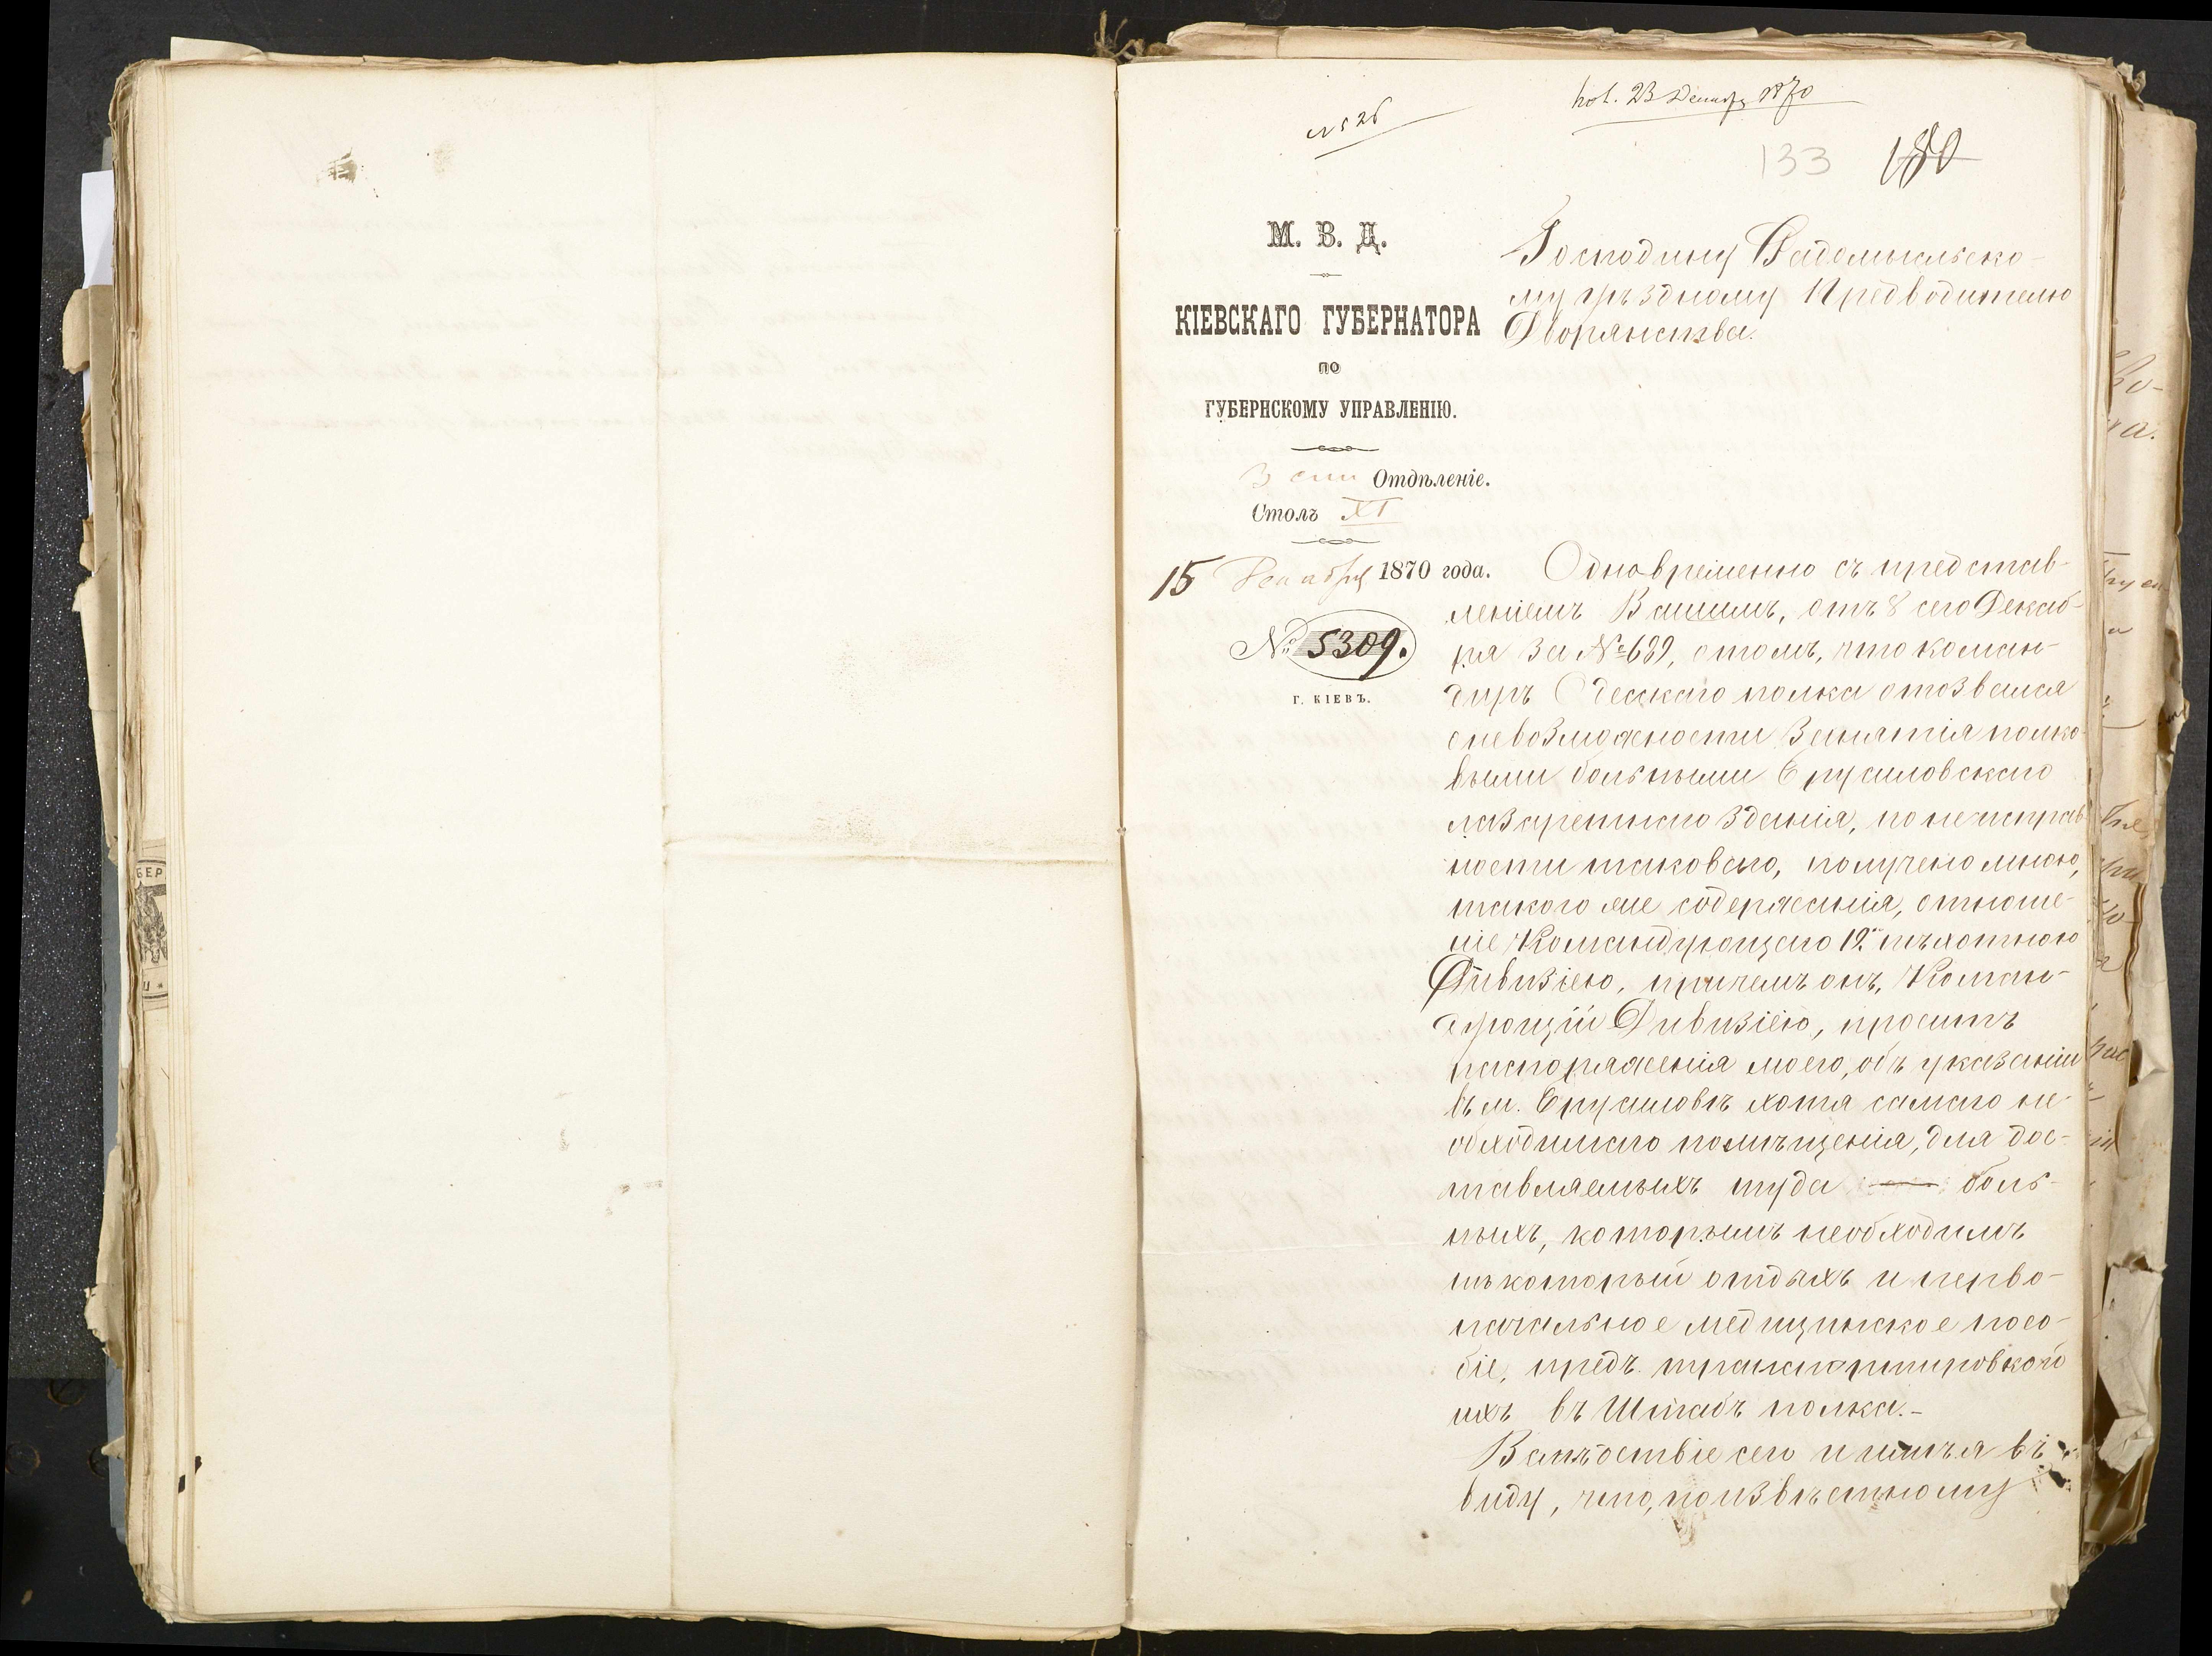 № 526
пол. 23 Декабр 1870
133 180
М. В. Д.
КІЕВСКАГО ГУБЕРНАТОРА
ПО
ГУБЕРНСКОМУ УПРАВЛЕНІЮ.
3 Отдѣленіе.
Столъ XI
15 Декабря 1870 года.
№ 5309.
Г. КІЕВЪ.
Господину Радомысльско-
му уѣздному Предводителю
Дворянства.
Одновременно съ представ-
леніемъ Вашимъ, отъ 8 сего Декаб-
ря за № 689, о томъ, что коман-
диръ Одесскаго полка отозвался
о невозможности занятія полко-
выми больными Брусиловскаго
лазаретнаго зданія, по неисправ-
ности таковаго, получено мною,
такого же содержанія, отноше-
ніе Командующаго 12й пѣхотною
Дивизіею, причемъ онъ, Коман-
дующій Дивизіею, проситъ
распоряженія моего, объ указаніи
въ м. Брусиловѣ хотя самаго не-
обходимаго помѣщенія, для дос-
тавляемыхъ туда боль-
ныхъ, которымъ необходимъ
нѣкоторый отдыхъ и перво-
начальное медицинское посо-
біе, предъ транспортировкой
ихъ въ Штабъ полка.-
Вслѣдствіе сего и имѣя въ
виду, что, по извѣстному